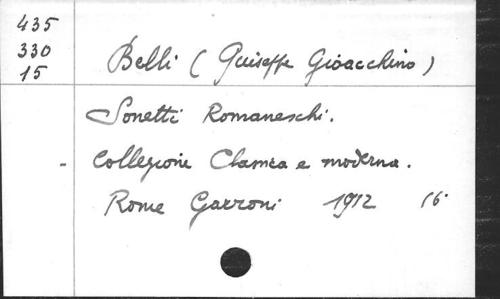 435
330
15
Belli (Guiseffe Gioacchino)
Sonetti Romaneschi.
Collezione Classica e moderna.
Rome Garroni 1912 16°